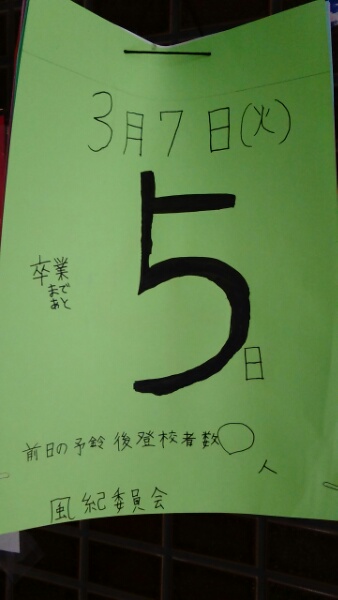 3月7日(火)
卒業
まで
あと
5日
前日の予鈴後登校者数○人
風紀委員会